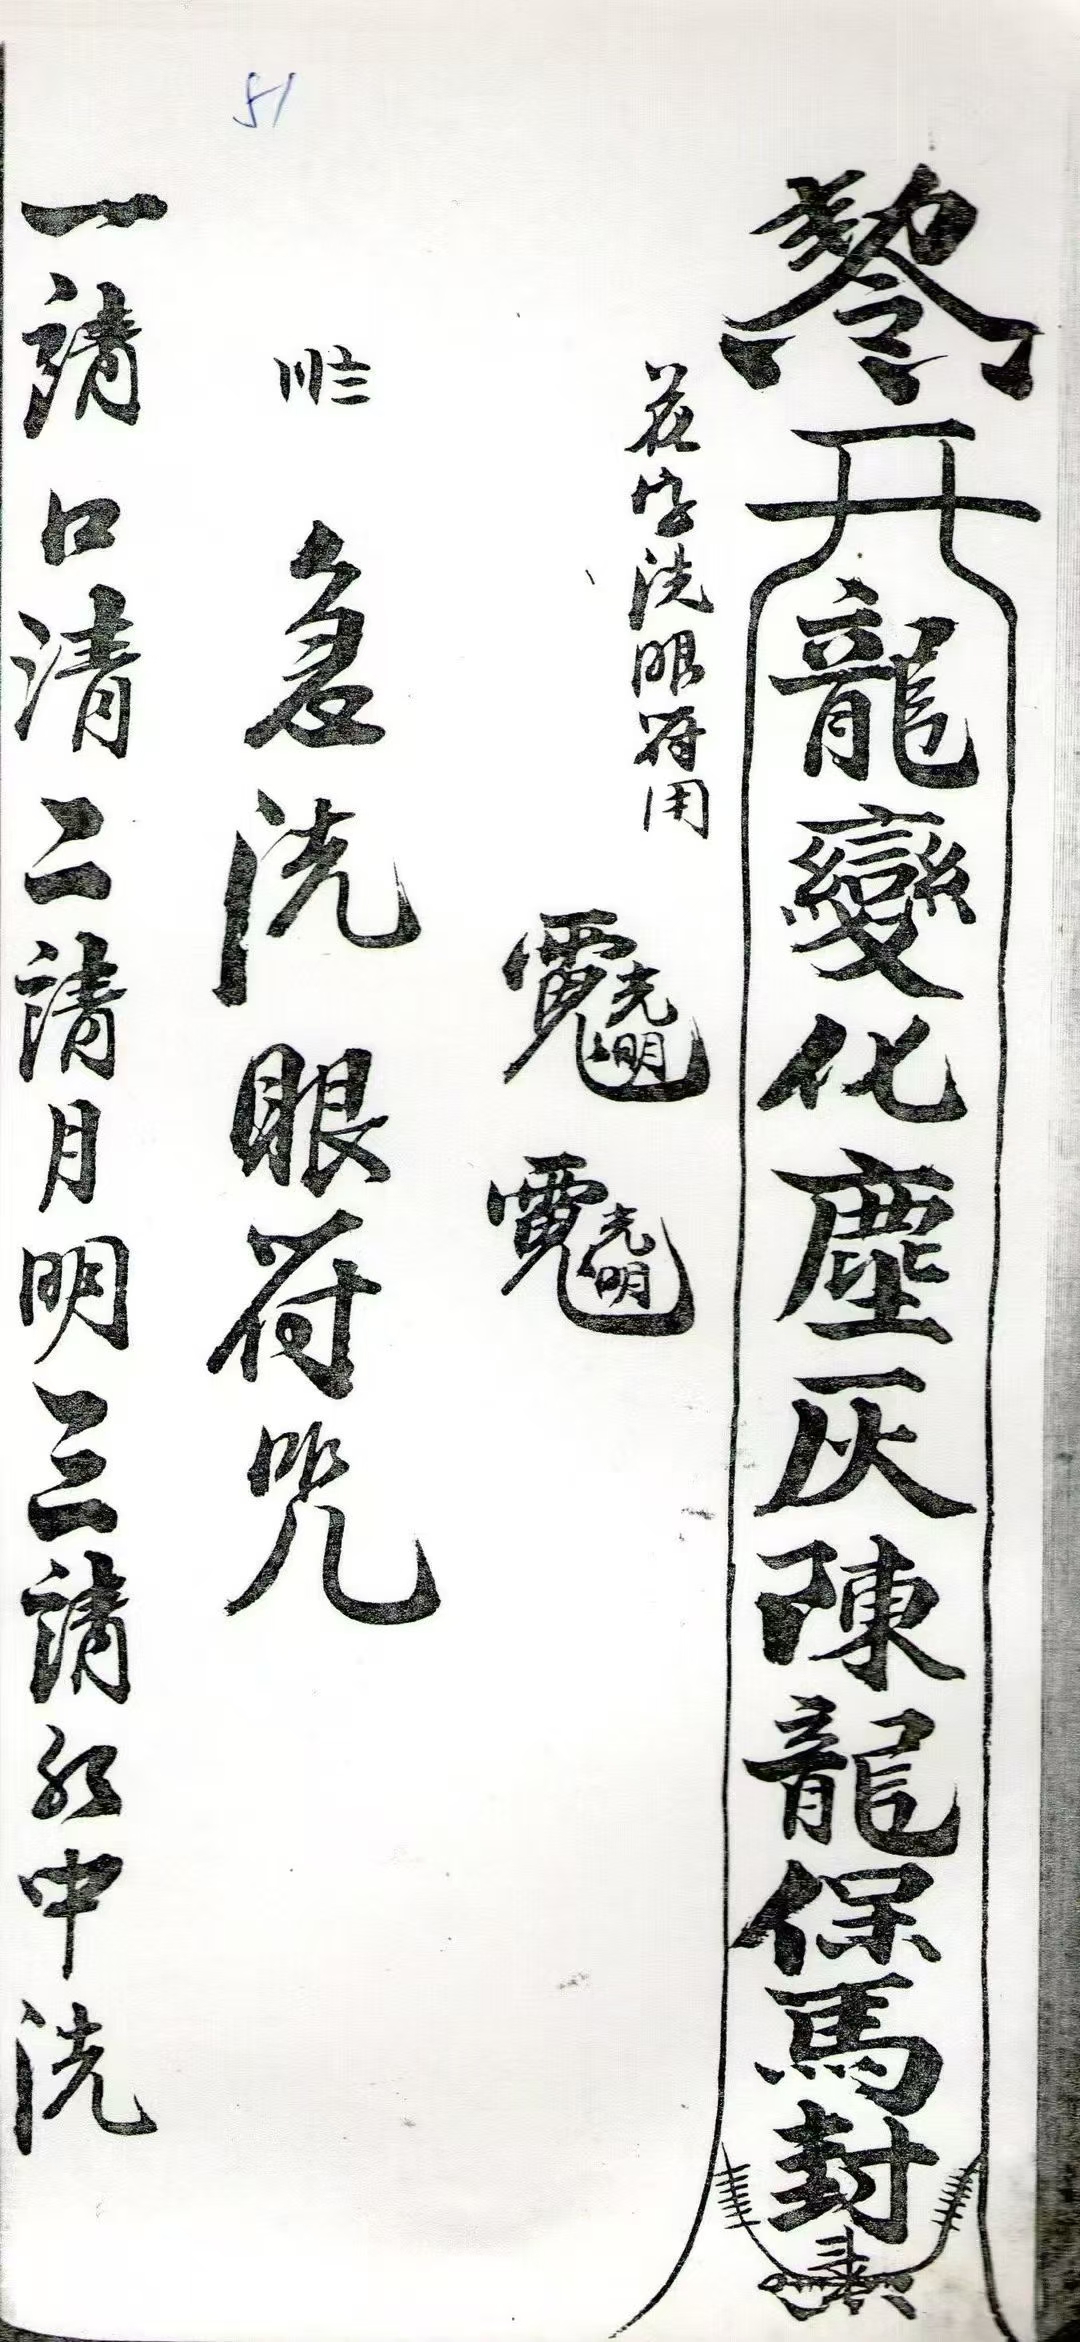 龍變化塵灰陳龍保馬封
花字洗眼符用
光明
光明
急洗眼符咒
一請口清二請月明三請紅中洗
51